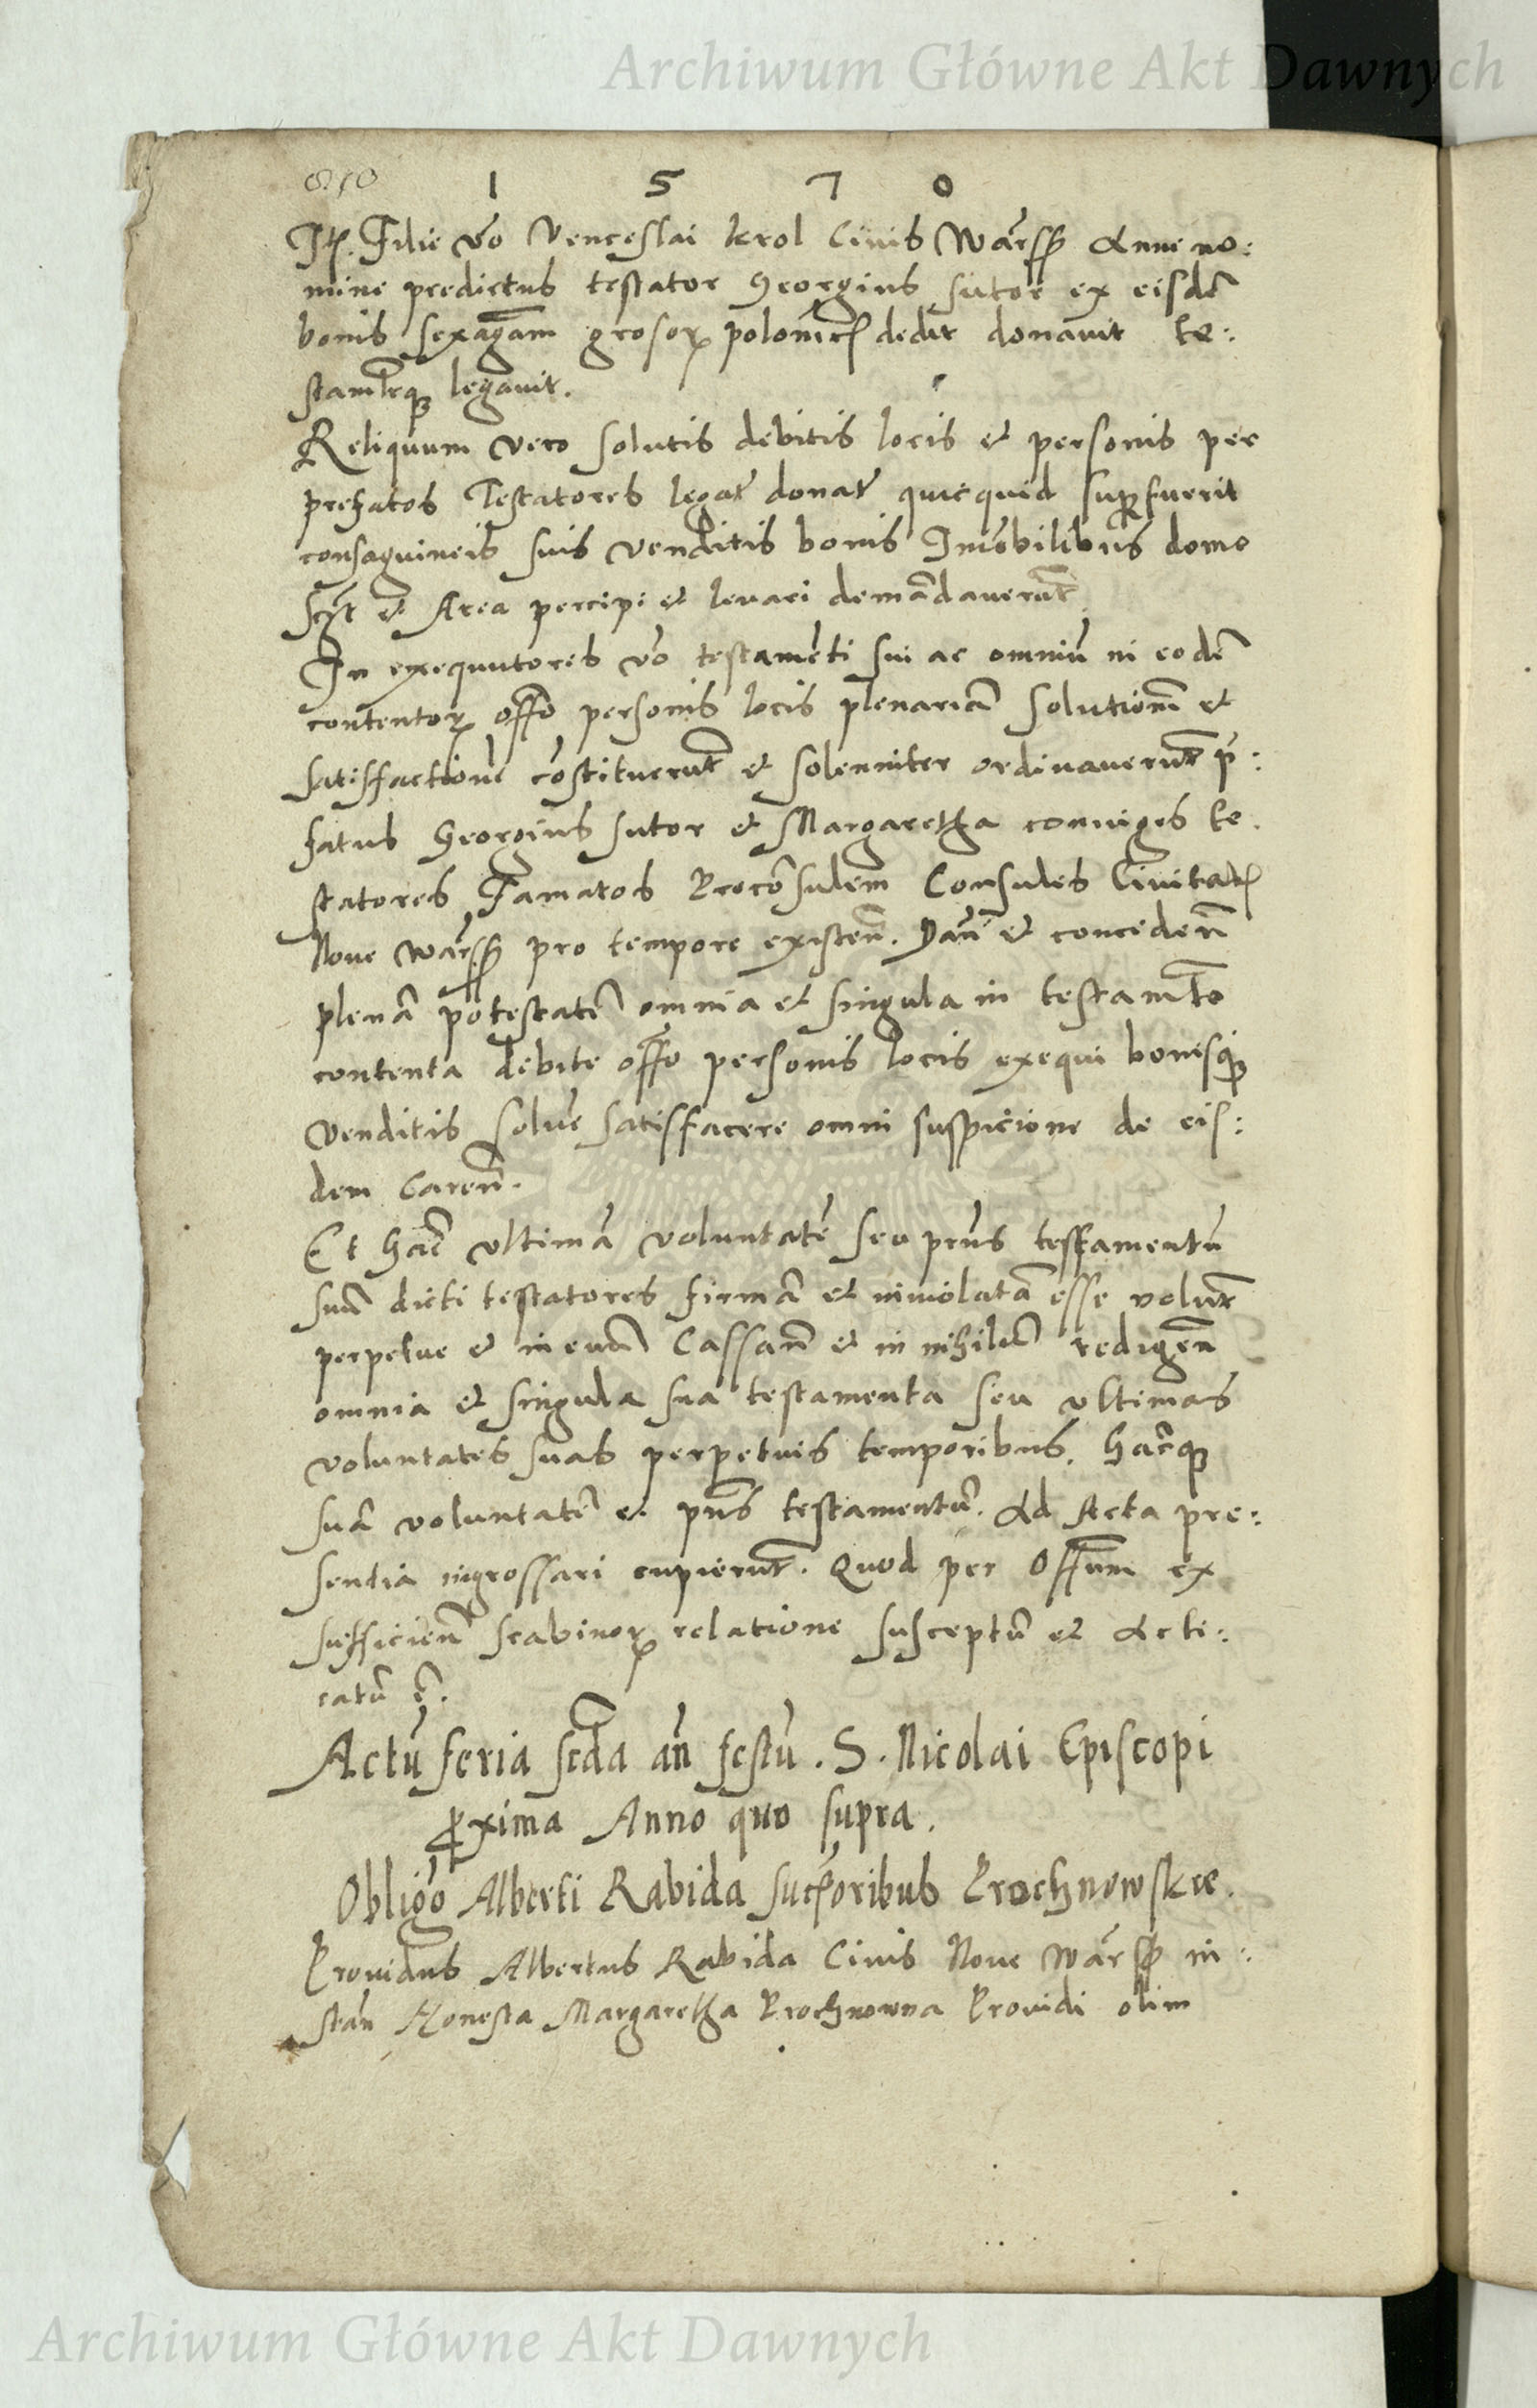 Archiwum Główne Akt Dawnych
810
1 5 7 0
Itē. Filie vō Venceslai krol Civis Warsz̄ Anne no:
mine predictus testator Georgius sutor ex eisdē
bonis sexagām grosor̄ polonicꝭ dedit donavit te:
stamtēqȝ legavit.
Reliquum vero solutis debitis locis et personis per
prefatos Testatores legat̄ donat̄ quicquid suꝑfuerit
consaguineis suis venditis bonis Imōbilibus domo
scꝫt et Area percipi et levari demādaverūt
In exequutores vō testamēti sui ac omniū in eodē
contentor̄ offō personis locis plenariā solutionē et
satisfactionē cōstituerūt et solenniter ordinaverūt p̄:
fatus Georgius sutor et Margaretha coniuges te.
statores Famatos Procōsulem Consules Civitatꝭ
Nove Warsz̄ pro tempore existen̄. Dan̄ et conceden̄
plenā potestatē omnia et singula in testamtō
contenta debite offō personis locis exequi bonisqȝ
venditis solvē satisfacere omni suspicione de eis:
dem Caren̄.
Et hāc ultimā voluntatē seu pn̄s testamentū
suū dicti testatores firmā et inviolatā esse volūt
perpetue et in evū Cassan̄ et in nihilū redigen̄
omnia et singula sua testamenta seu ultimas
voluntates suas perpetuis temporibus. hācqȝ
suā voluntatē et pn̄s testamentū. Ad Acta pre:
sentia ingrossari cupierūt. Quod per Offūm ex
sufficien̄ scabinor̄ relatione susceptū et Acti:
catū ē.
Actū feria scd̄a an̄ festū. S. Nicolai Episcopi
ꝓxima Anno quo supra.
Obligō Alberti Rabida sucꝭoribus Prochnowskie.
Providus Albertus Rabida Civis Nove Warsz̄ in:
stān Honesta Margaretha Prochnowna Providi olim
Archiwum Główne Akt Dawnych